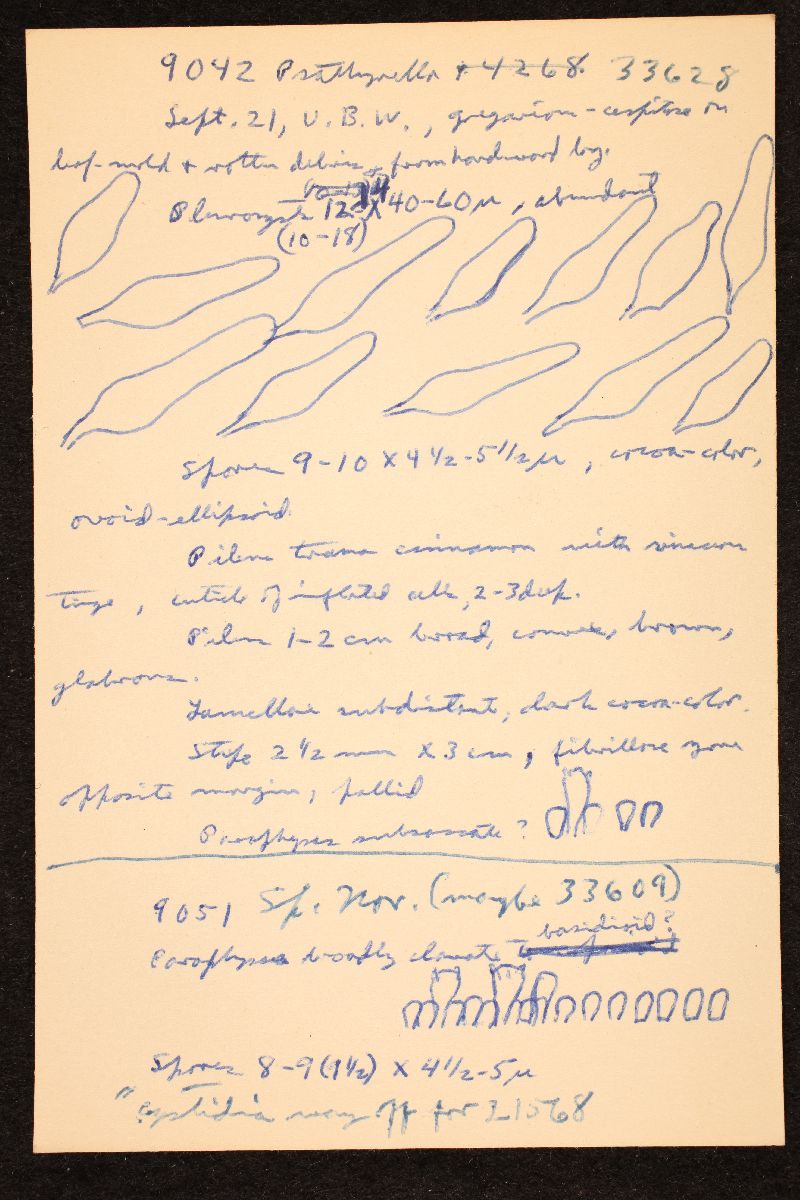 9042 Psathyrella + 4268. 33628
Sept. 21, U.B.W., gregarious-cespitose on
leaf-mold + rotten debris from hardwood log.
Pleurocysts 12-14 X 40-60 µ, abundant
(10-18)
Spores 9-10 X 4 1/2-5 1/2 µ, cocoa-color,
ovoid-ellipsoid.
Pileus trama cinnamon with vinaceous
tinge, cuticle of inflated cells, 2-3 deep.
Pileus 1-2 cm broad, convex, brown,
glabrous.
Lamellae subdistant, dark cocoa-color.
Stipe 2 1/2 mm X 3 cm, fibrillose zone
opposite margin, pallid
Paraphyses subsaccate?
9051 Sp. Nov. (maybe 33609)
basidioid?
Paraphyses broadly clavate
Spores 8-9(9 1/2) X 4 1/2-5 µ
"Cystidia way off for 21568